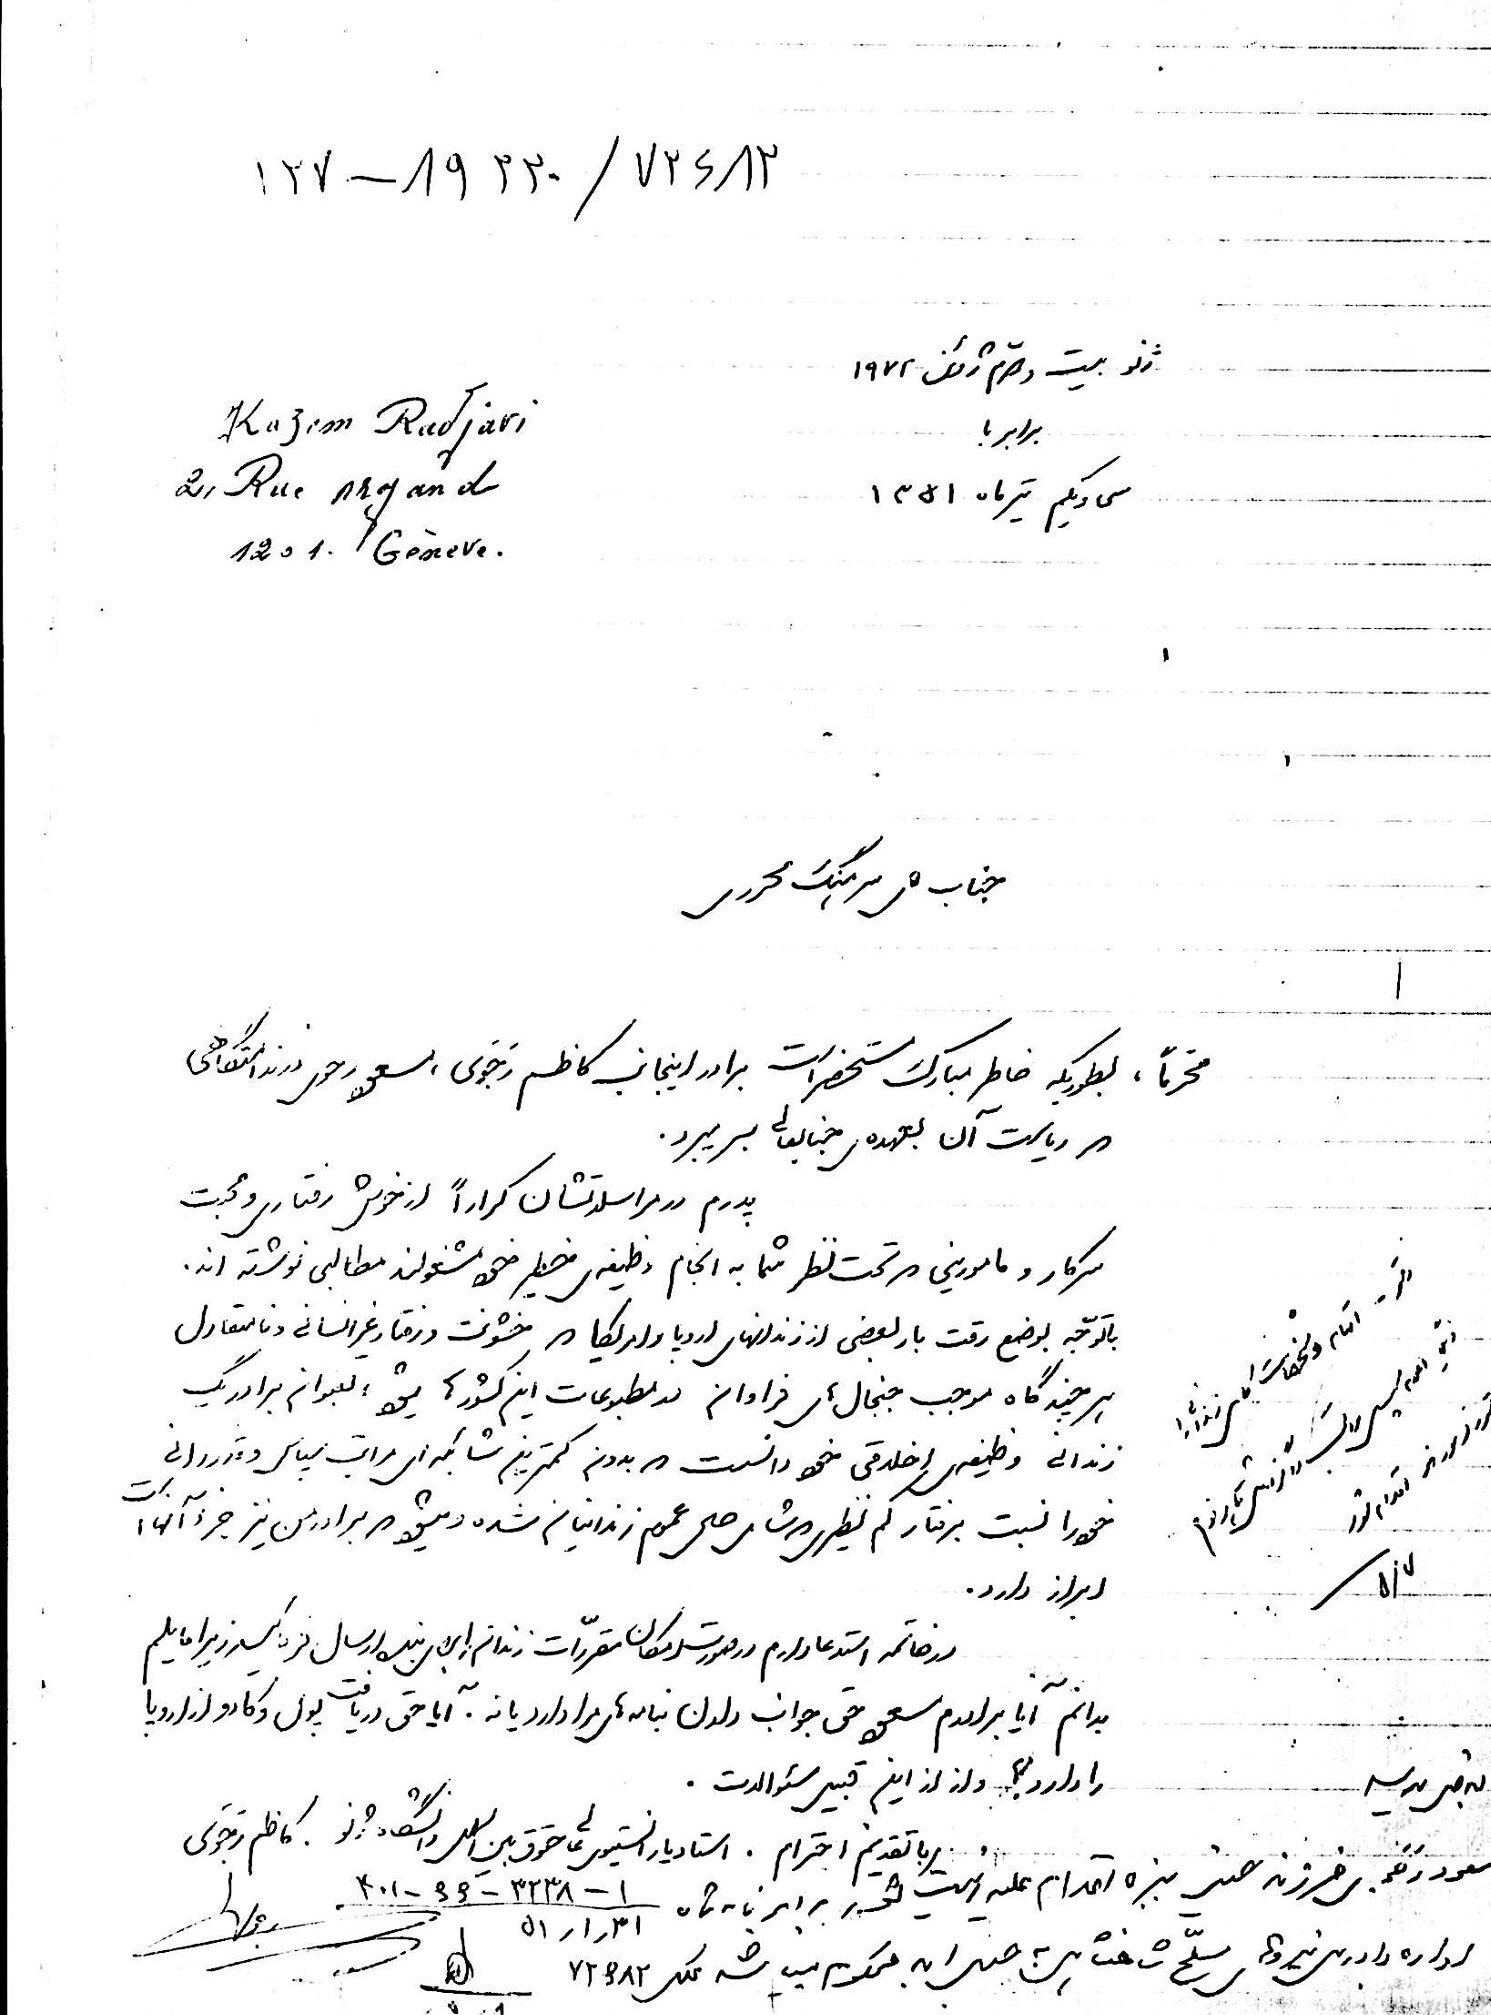 ۱۲۷-۸۹ ۳۳۰/۷۲۶۸۳
ژنو بیست و دوم ژوئن ۱۹۷۲
برابر با
سی و یکم تیر ماه ۱۳۵۱
Kazem Radjavi
2, Rue Argand
1201. Genève.
جناب سرهنگ محرری
محترماً، بطوریکه خاطر مبارک مستحضر است برادر اینجانب کاظم رجوی، مسعود رجوی در زندان
ریاست آن بعهده‌ی جنابعالی بسر میبرد.
پدرم در مراسلاتشان کراراً از خوش رفتاری و محبت
سرکار و مامورینی که تحت نظر شما به انجام وظیفه‌ی خطیر خود مشغولند مطالبی نوشته اند.
باتوجه بوضع رقت بار بعضی از زندانهای اروپا و امریکا که خشونت و رفتار غیر انسانی و نامتعادل
هر چند گاه موجب جنجال‌های فراوان در مطبوعات این کشورها میشود، بعنوان برادر یک
زندانی وظیفه‌ی اخلاقی خود دانست که بدون کمترین شائبه‌ای مراتب سپاس و قدردانی
خود را نسبت برفتار کم نظیری که شامل حال عموم زندانیان شده و میشود که برادر من نیز جزء آنها است
ابراز دارد.
در خاتمه استدعا دارم در صورت امکان مقررات زندان را برای بنده ارسال فرمائید زیرا مایلم
بدانم آیا برادرم مسعود حق جواب دادن نامه‌های مرا دارد یا نه. آیا حق دریافت پول و کادو از اروپا
را دارد؟ و از این قبیل سئوالات.
با تقدیم احترام. استادیار انستیتوی عالی حقوق بین المللی دانشگاه ژنو. کاظم رجوی
مسعود رجوی فرزند حسین بزه اقدام علیه امنیت کشور برابر نامه شماره ۴۰۱-۶۶-۳۲۳۸-۱
۵۱/۱/۳۱
اداره دادرسی نیروهای مسلح شاهنشاهی به حبس ابد محکوم میباشد ۷۲۶۸۲
۵/۷